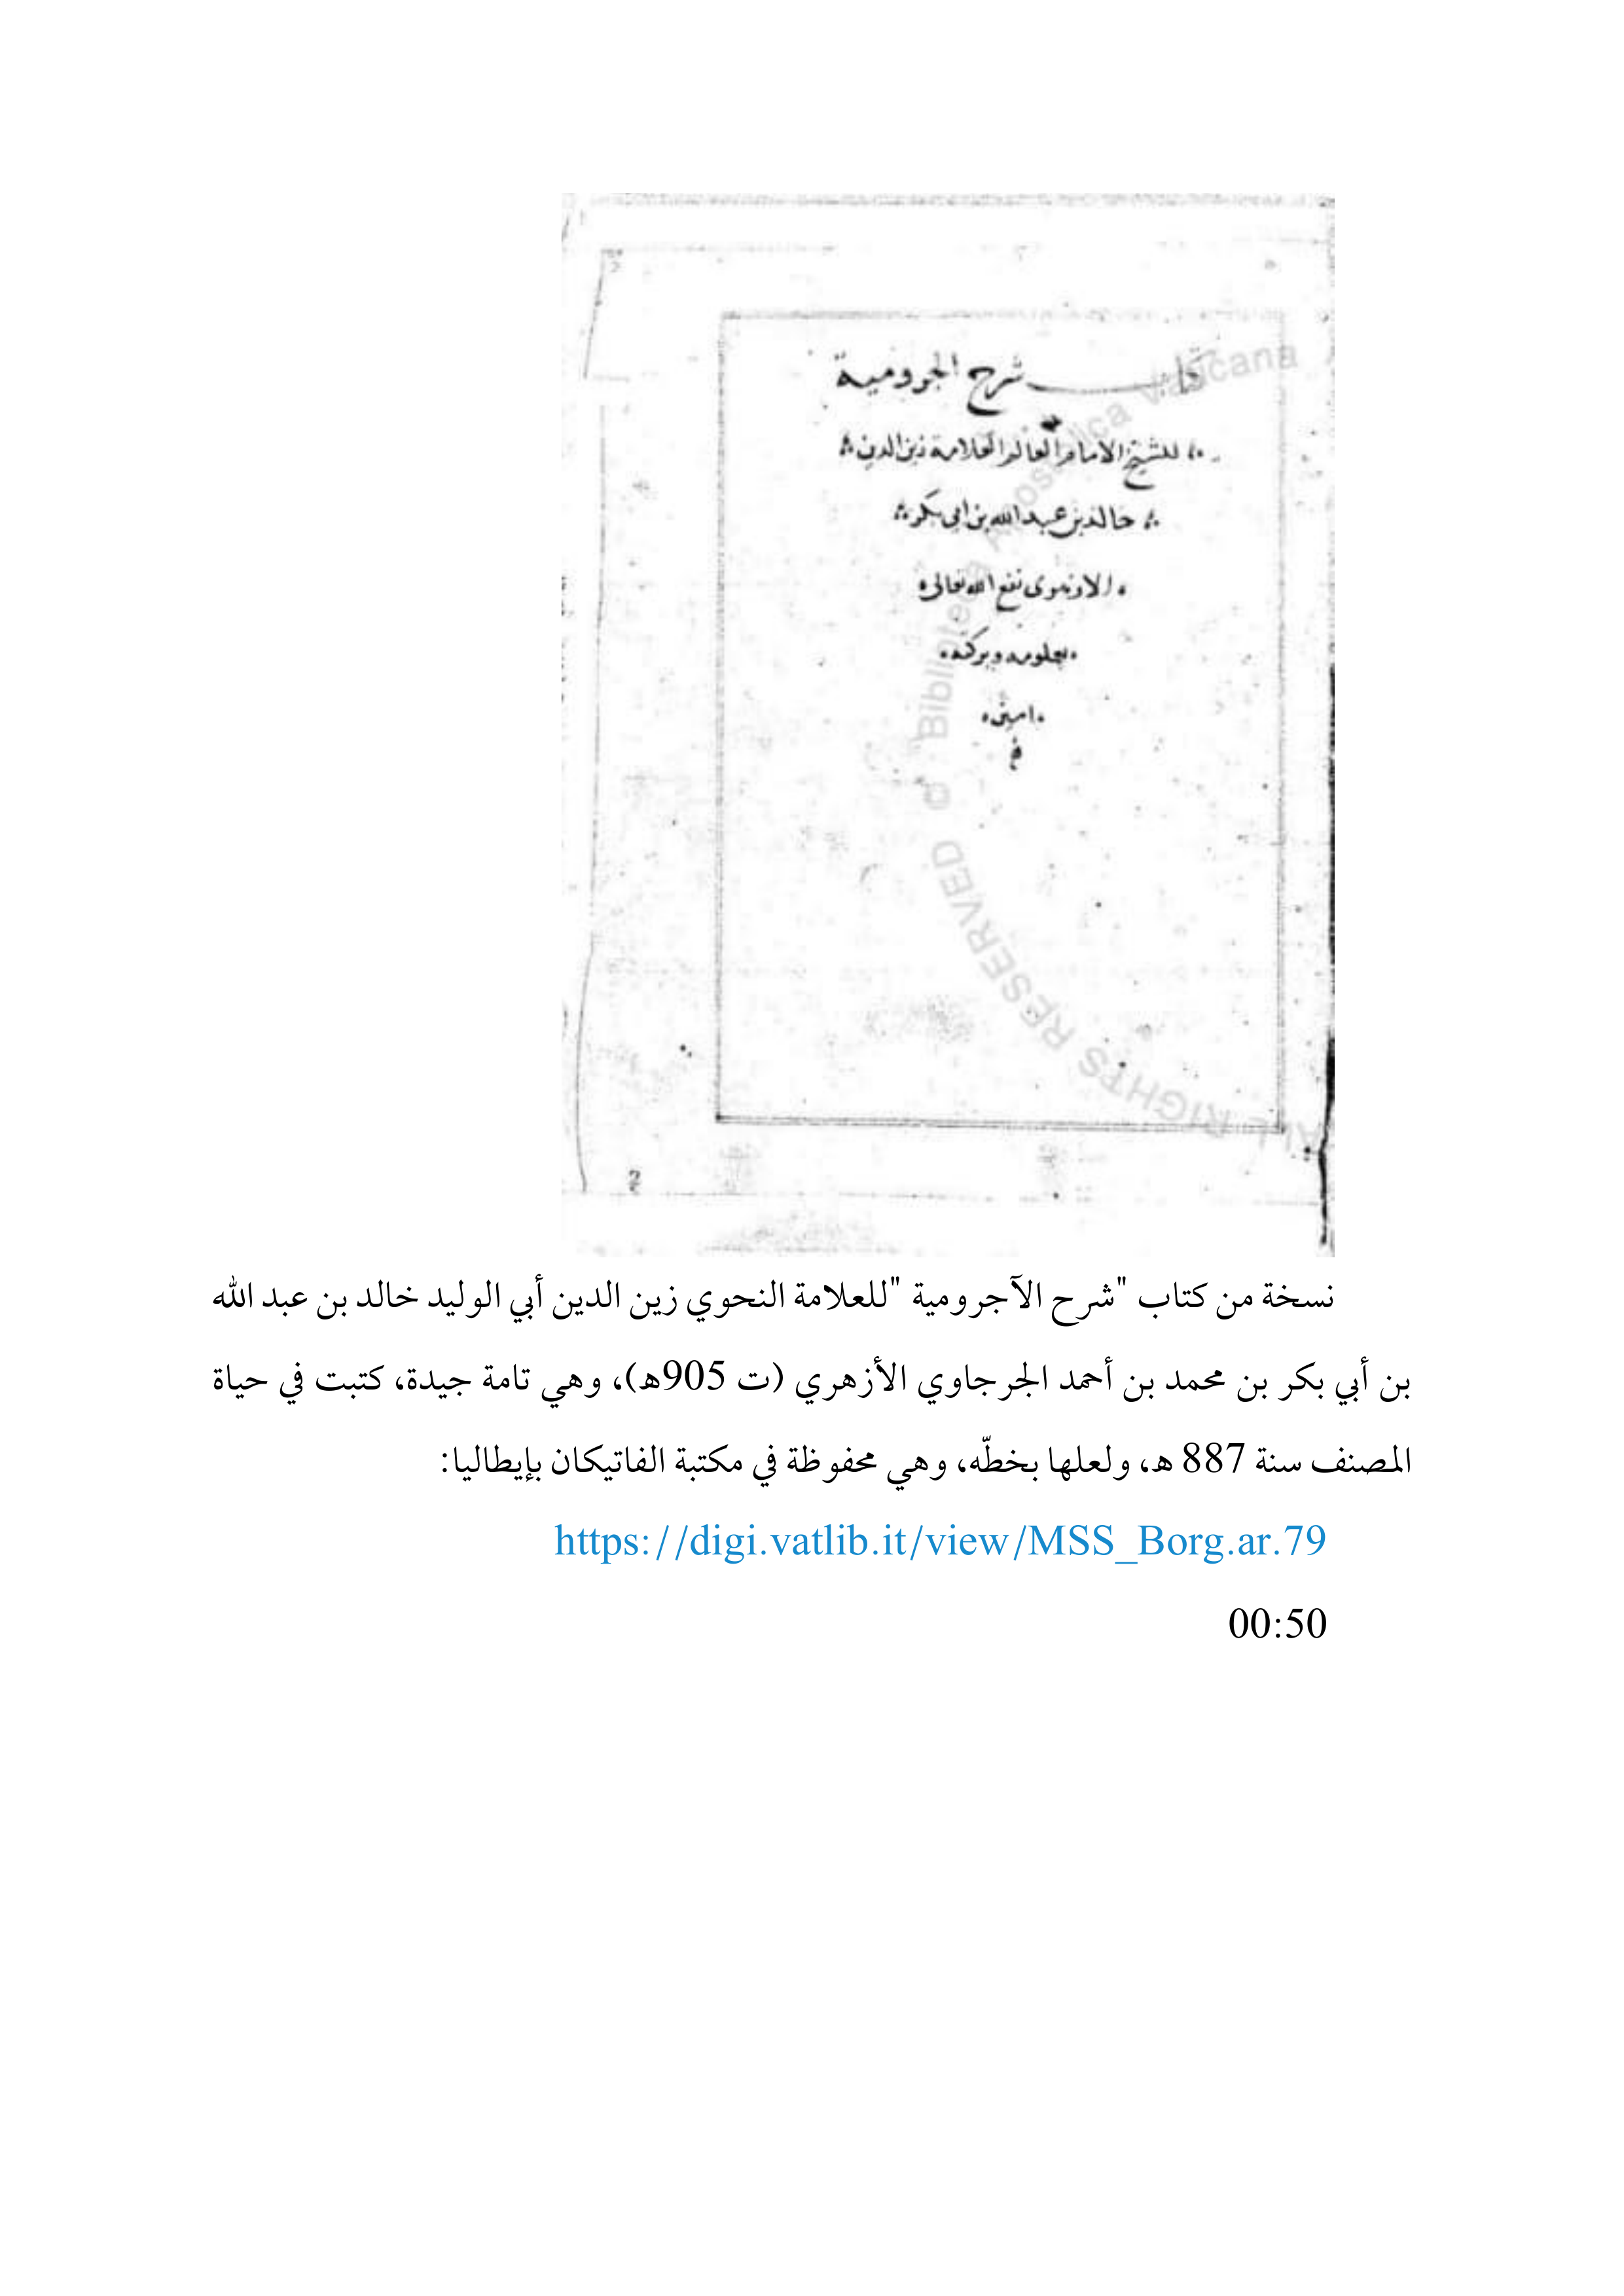 كتاب شرح الجرومية
للشيخ الامام العالم العلامة زين الدين
خالد بن عبد الله بن ابى بكر
الازهرى نفع الله تعالى
بعلومه وبركته
امين
© Biblioteca Apostolica Vaticana
ALL RIGHTS RESERVED
2
نسخة من كتاب "شرح الآجرومية "للعلامة النحوي زين الدين أبي الوليد خالد بن عبد الله
بن أبي بكر بن محمد بن أحمد الجرجاوي الأزهري (ت 905هـ)، وهي تامة جيدة، كتبت في حياة
المصنف سنة 887 هـ، ولعلها بخطّه، وهي محفوظة في مكتبة الفاتيكان بإيطاليا:
https://digi.vatlib.it/view/MSS_Borg.ar.79
00:50